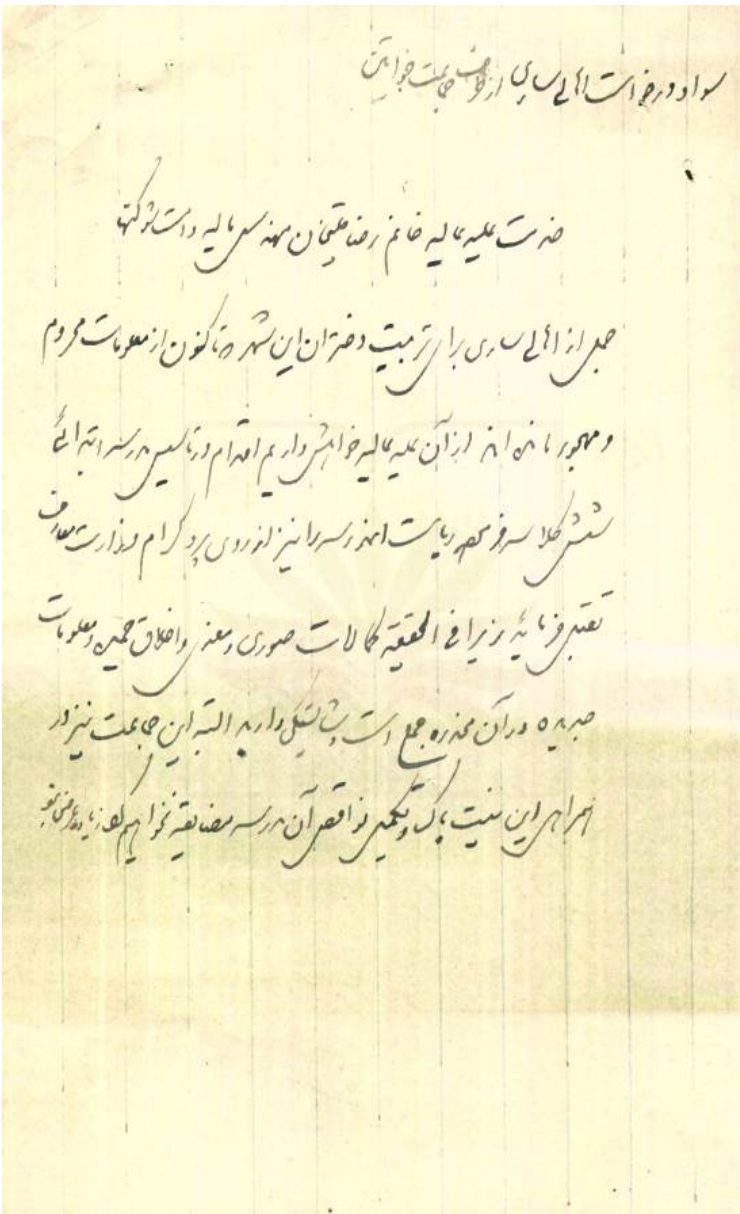 سواد درخواست اهالی ساری از طرف جماعت خواتین
خدمت علیه عالیه خانم رضاقلیخان مهندس مالیه دامت شوکتها
جمعی از اهالی ساری برای تربیت دختران این شهر که تاکنون از معلومات محروم
و مهجور مانده اند از آن علیه عالیه خواهش داریم اقدام در تاسیس مدرسه ابتدائی
شش کلاسه فرموده ریاست مدرسه را نیز از روی پروگرام وزارت معارف
تقبل فرمایید زیرا فی الحقیقه کمالات صوری و معنوی و اخلاق حمیده و معلومات
جدیده در آن مخدره جمع است و شایستگی دارید البته این جماعت نیز در
همراهی این نیت پاک و تکمیل نواقص آن مدرسه مضایقه نخواهیم کرد زیاده عرضی